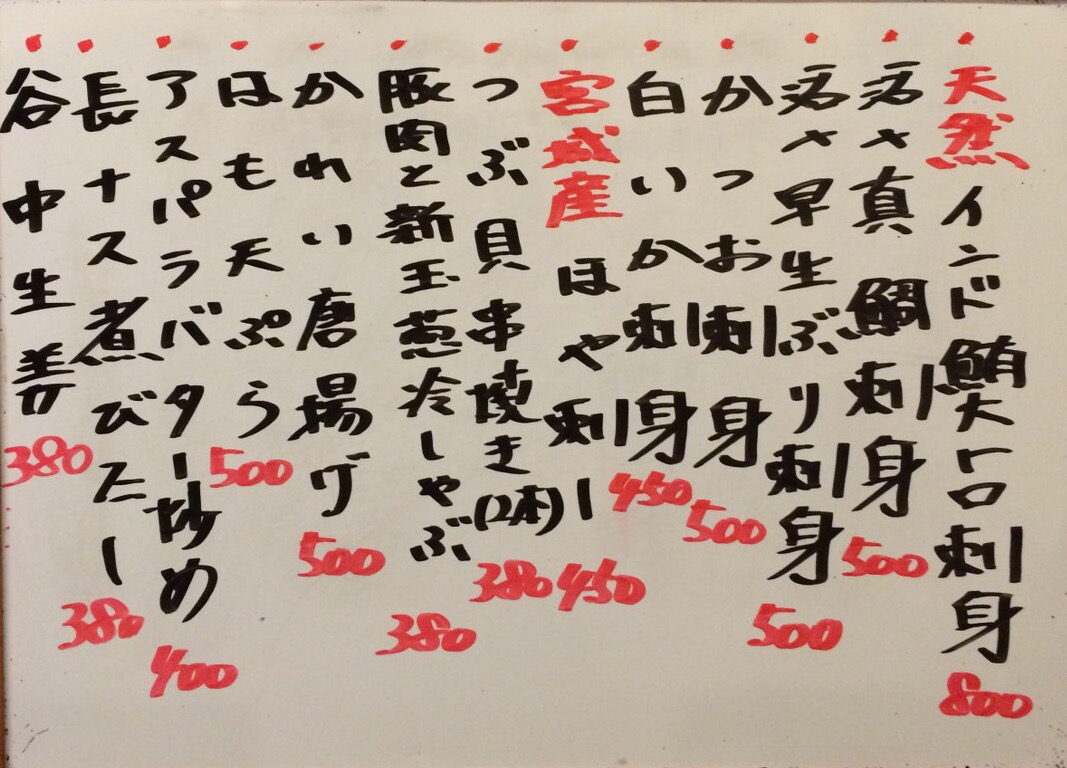 天然インド鮪大トロ刺身 800
活〆真鯛刺身 500
活〆早生ぶり刺身 500
かつお刺身 500
白いか刺身 450
宮城産ほや刺し 450
つぶ貝串焼き(2本) 380
豚肉と新玉葱冷しゃぶ 380
かれい唐揚げ 500
はも天ぷら 500
アスパラバター炒め 400
長ナス煮びたし 380
谷中生姜 380